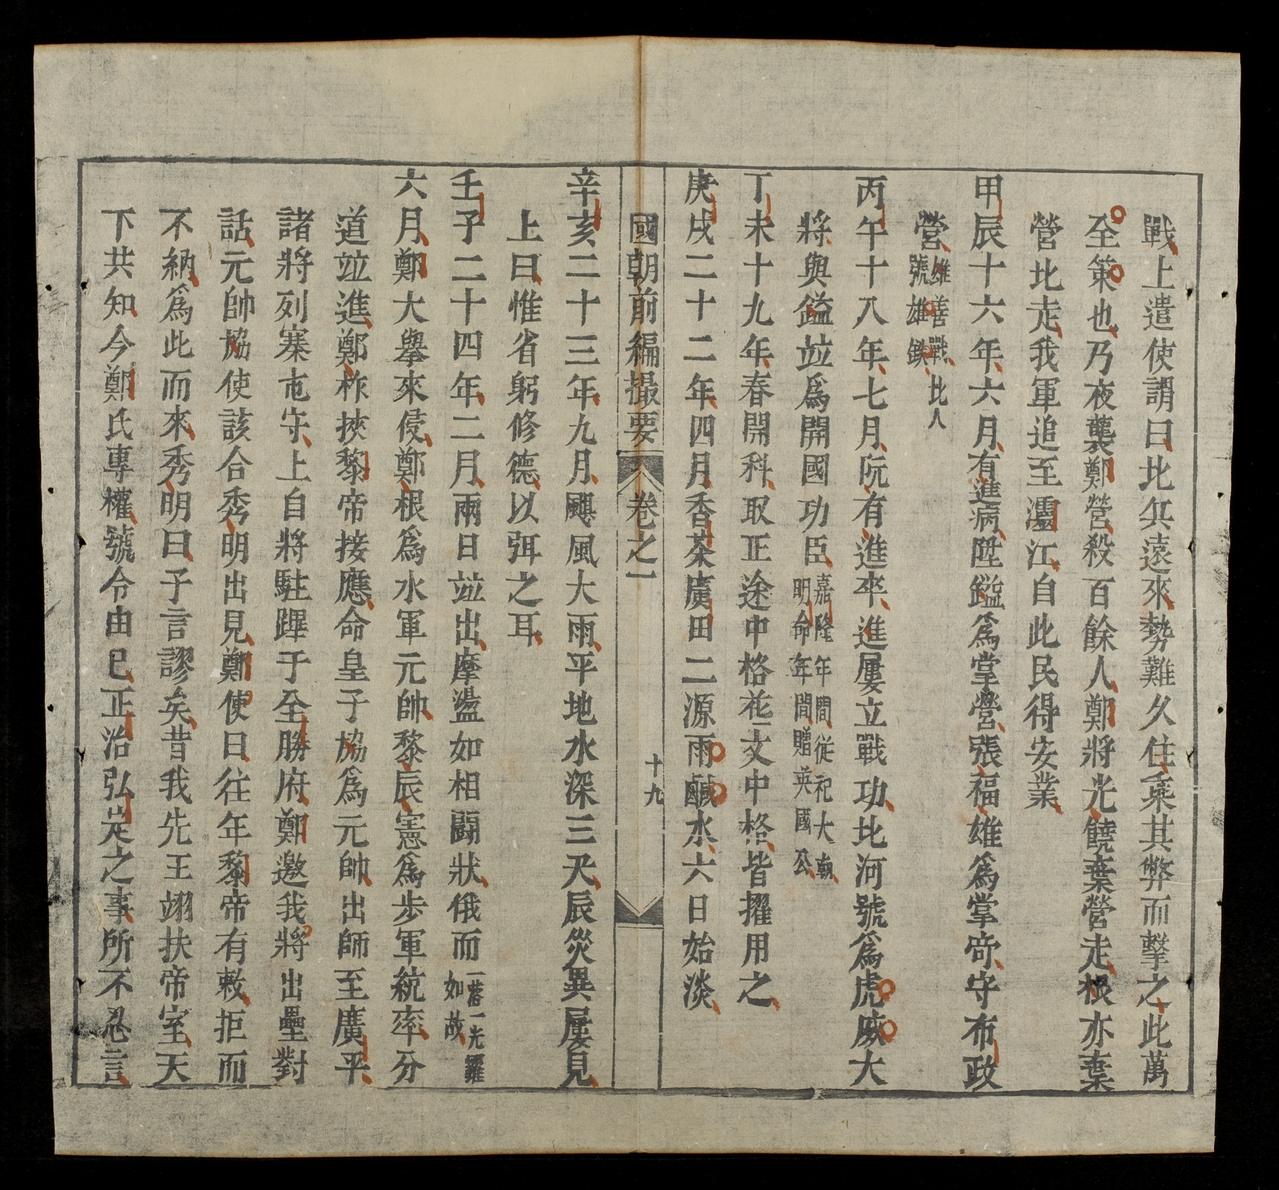 戰上遣使謂曰北兵遠來勢難久住乘其弊而擊之此萬
全策也乃夜襲鄭營殺百餘人鄭將光饒棄營走根亦棄
營北走我軍追至㶞江自此民得安業
甲辰十六年六月有進病陞鎰爲掌營張福雄爲掌奇守布政
營雄善戰北人
號雄鐵
丙午十八年七月阮有進卒進屢立戰功北河號爲虎威大
將與鎰竝爲開國功臣嘉隆年間從祀大廟
明命年間贈英國公
丁未十九年春開科取正途中格花文中格皆擢用之
庚戌二十二年四月香茶廣田二源雨鹹水六日始淡
國朝前編撮要 卷之一 十九
辛亥二十三年九月颶風大雨平地水深三尺辰災異屢見
上曰惟省躬修德以弭之耳
壬子二十四年二月兩日竝出摩盪如相鬪狀俄而一落一光耀
如故
六月鄭大舉來侵鄭根爲水軍元帥黎辰憲爲步軍統率分
道竝進鄭柞挾黎帝接應命皇子協爲元帥出師至廣平
諸將列寨屯守上自將駐蹕于全勝府鄭邀我將出壘對
話元帥協使該合秀明出見鄭使曰往年黎帝有敕拒而
不納爲此而來秀明曰予言謬矣昔我先王翊扶帝室天
下共知今鄭氏專權號令由已正治弘定之事所不忍言